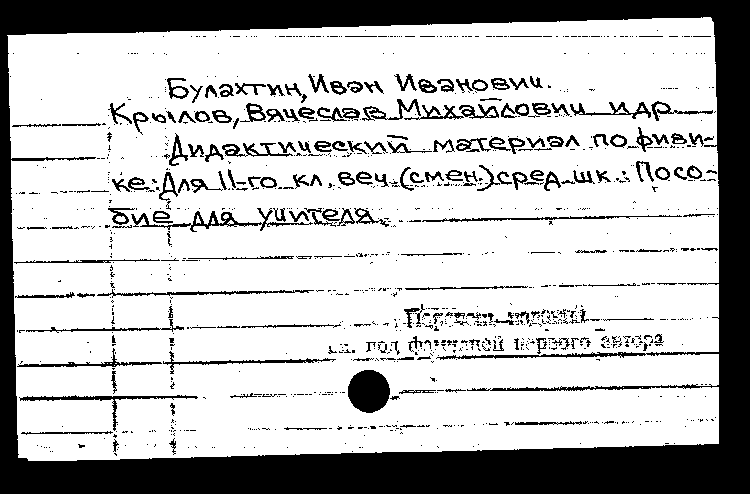 Булахтин, Иван Иванович.
Крылов, Вячеслав Михайлович и др.
Дидактический материал по физи-
ке: Для 11-го кл. веч. (смен.) сред. шк.: Посо-
бие для учителя.
Перечень изданий
см. под фамилией первого автора